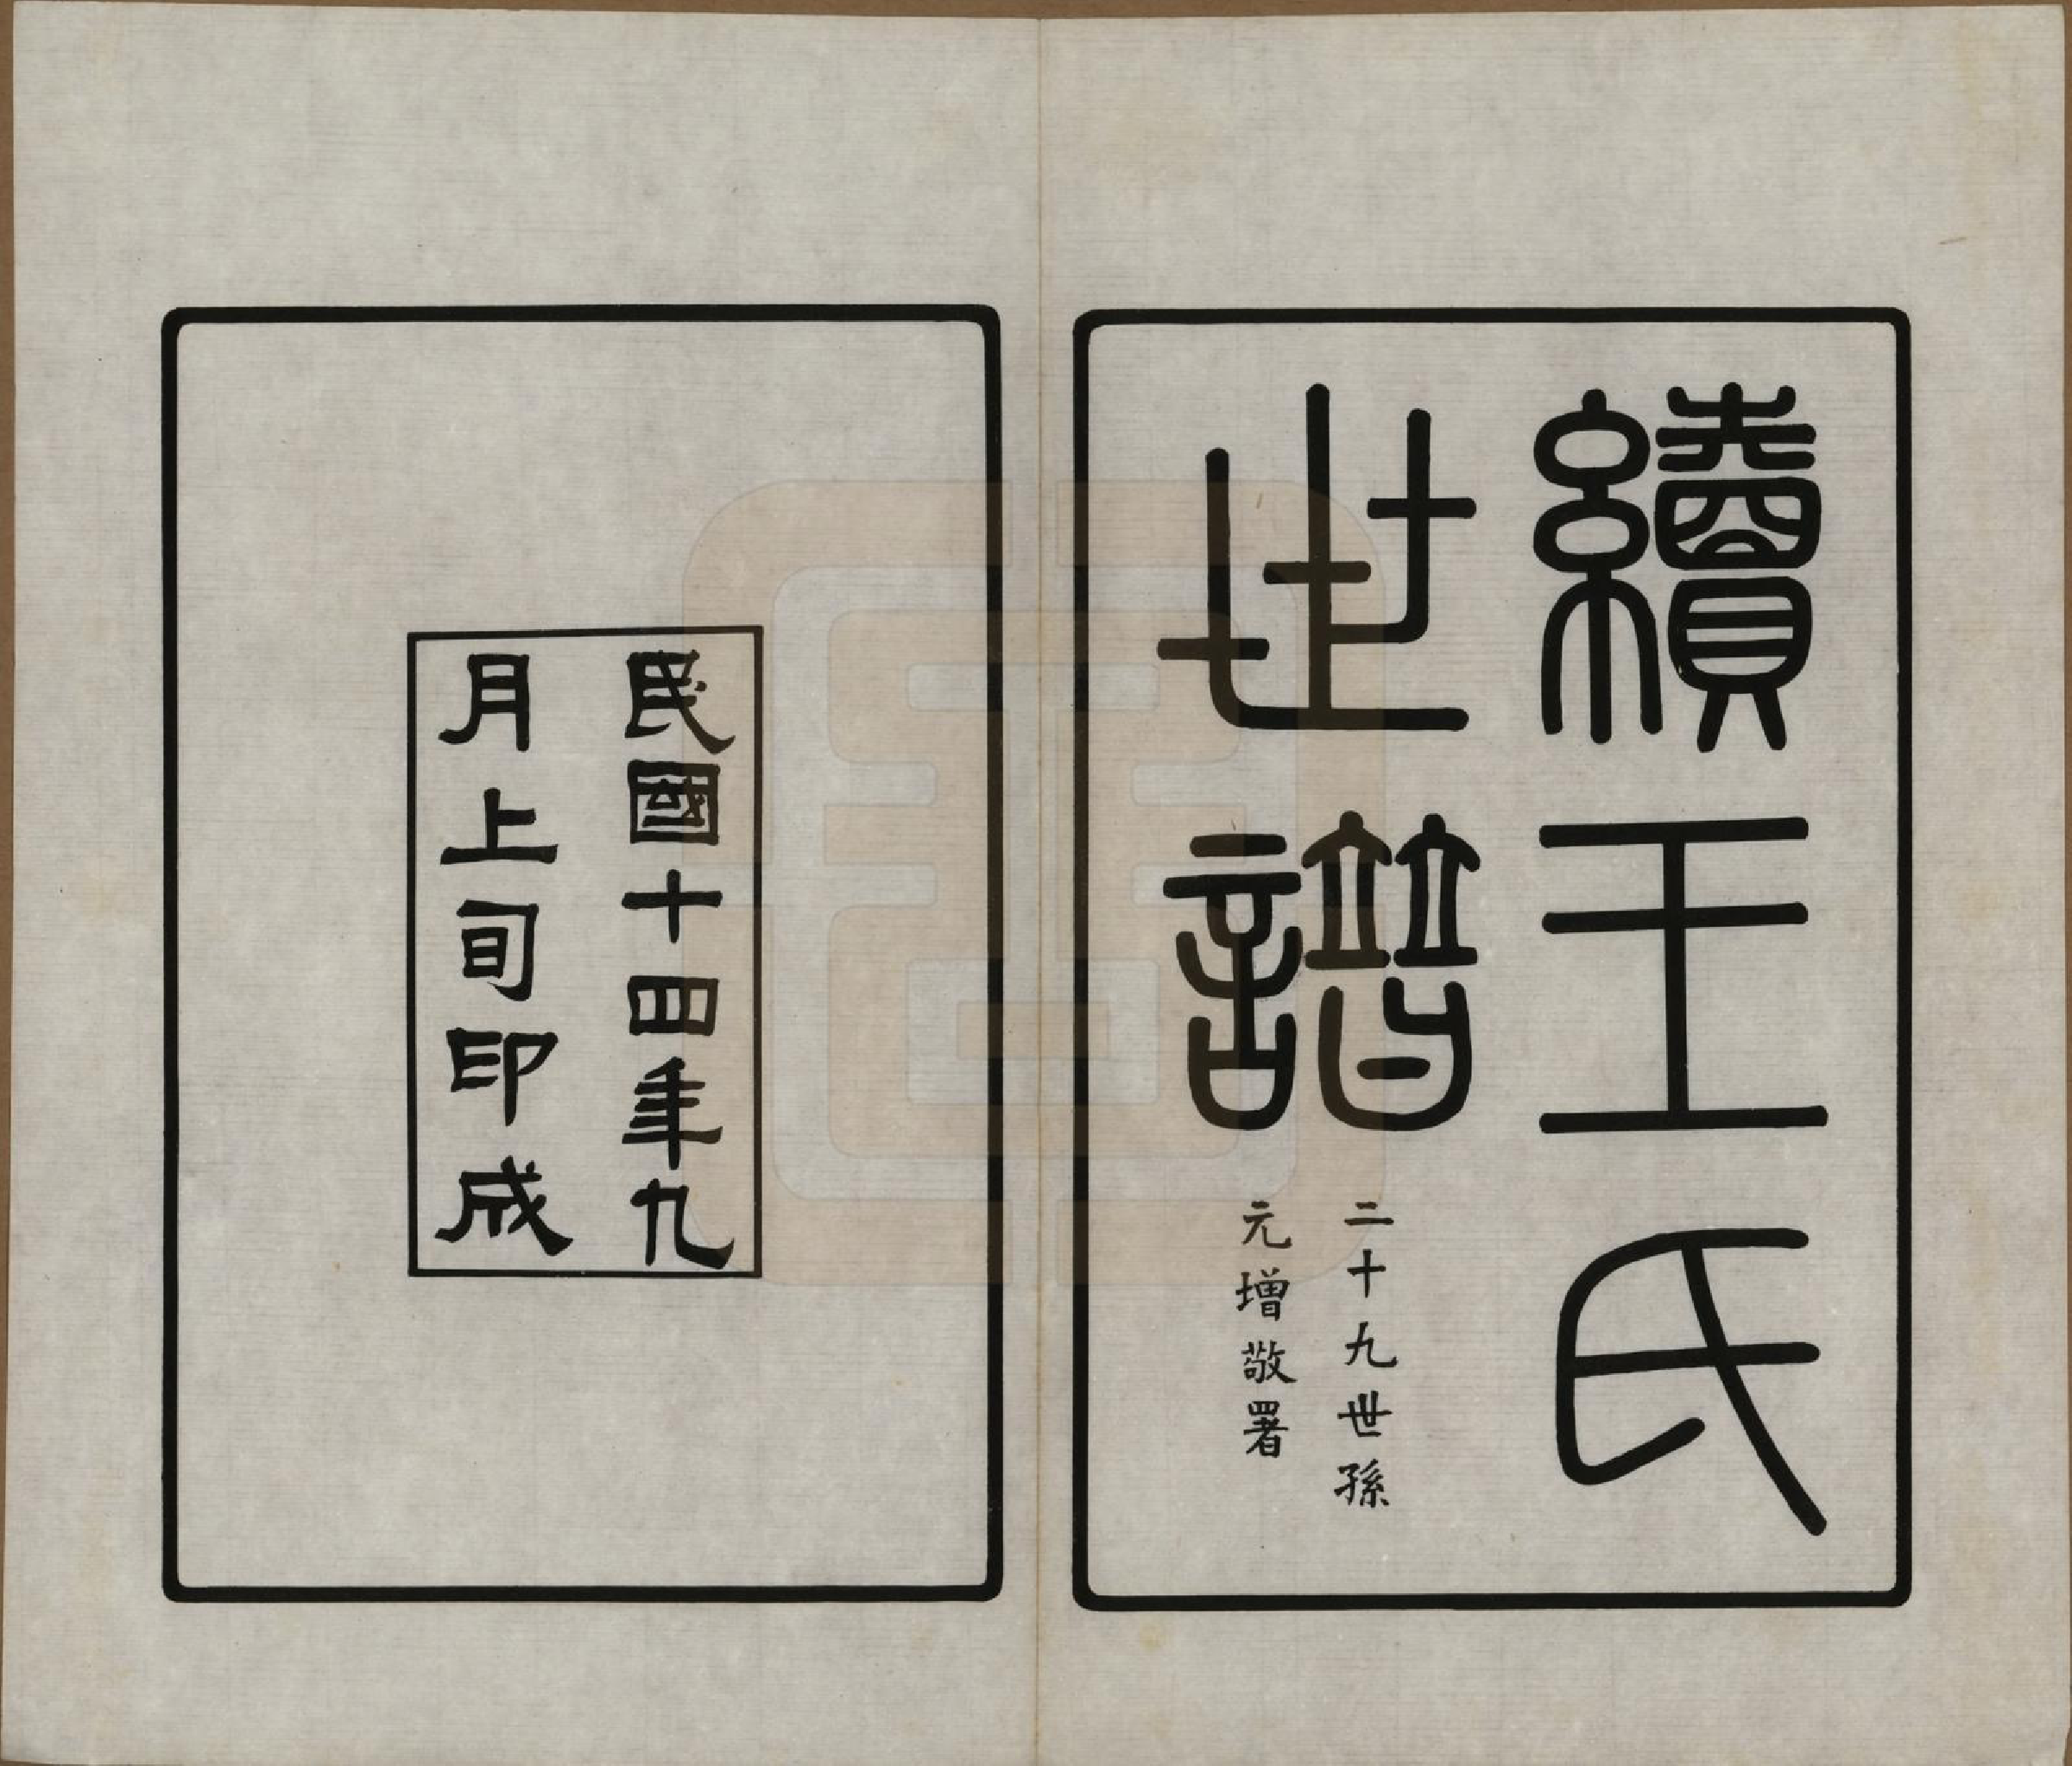 續王氏
世譜
二十九世孫
元增敬署
民國十四年九
月上旬印成